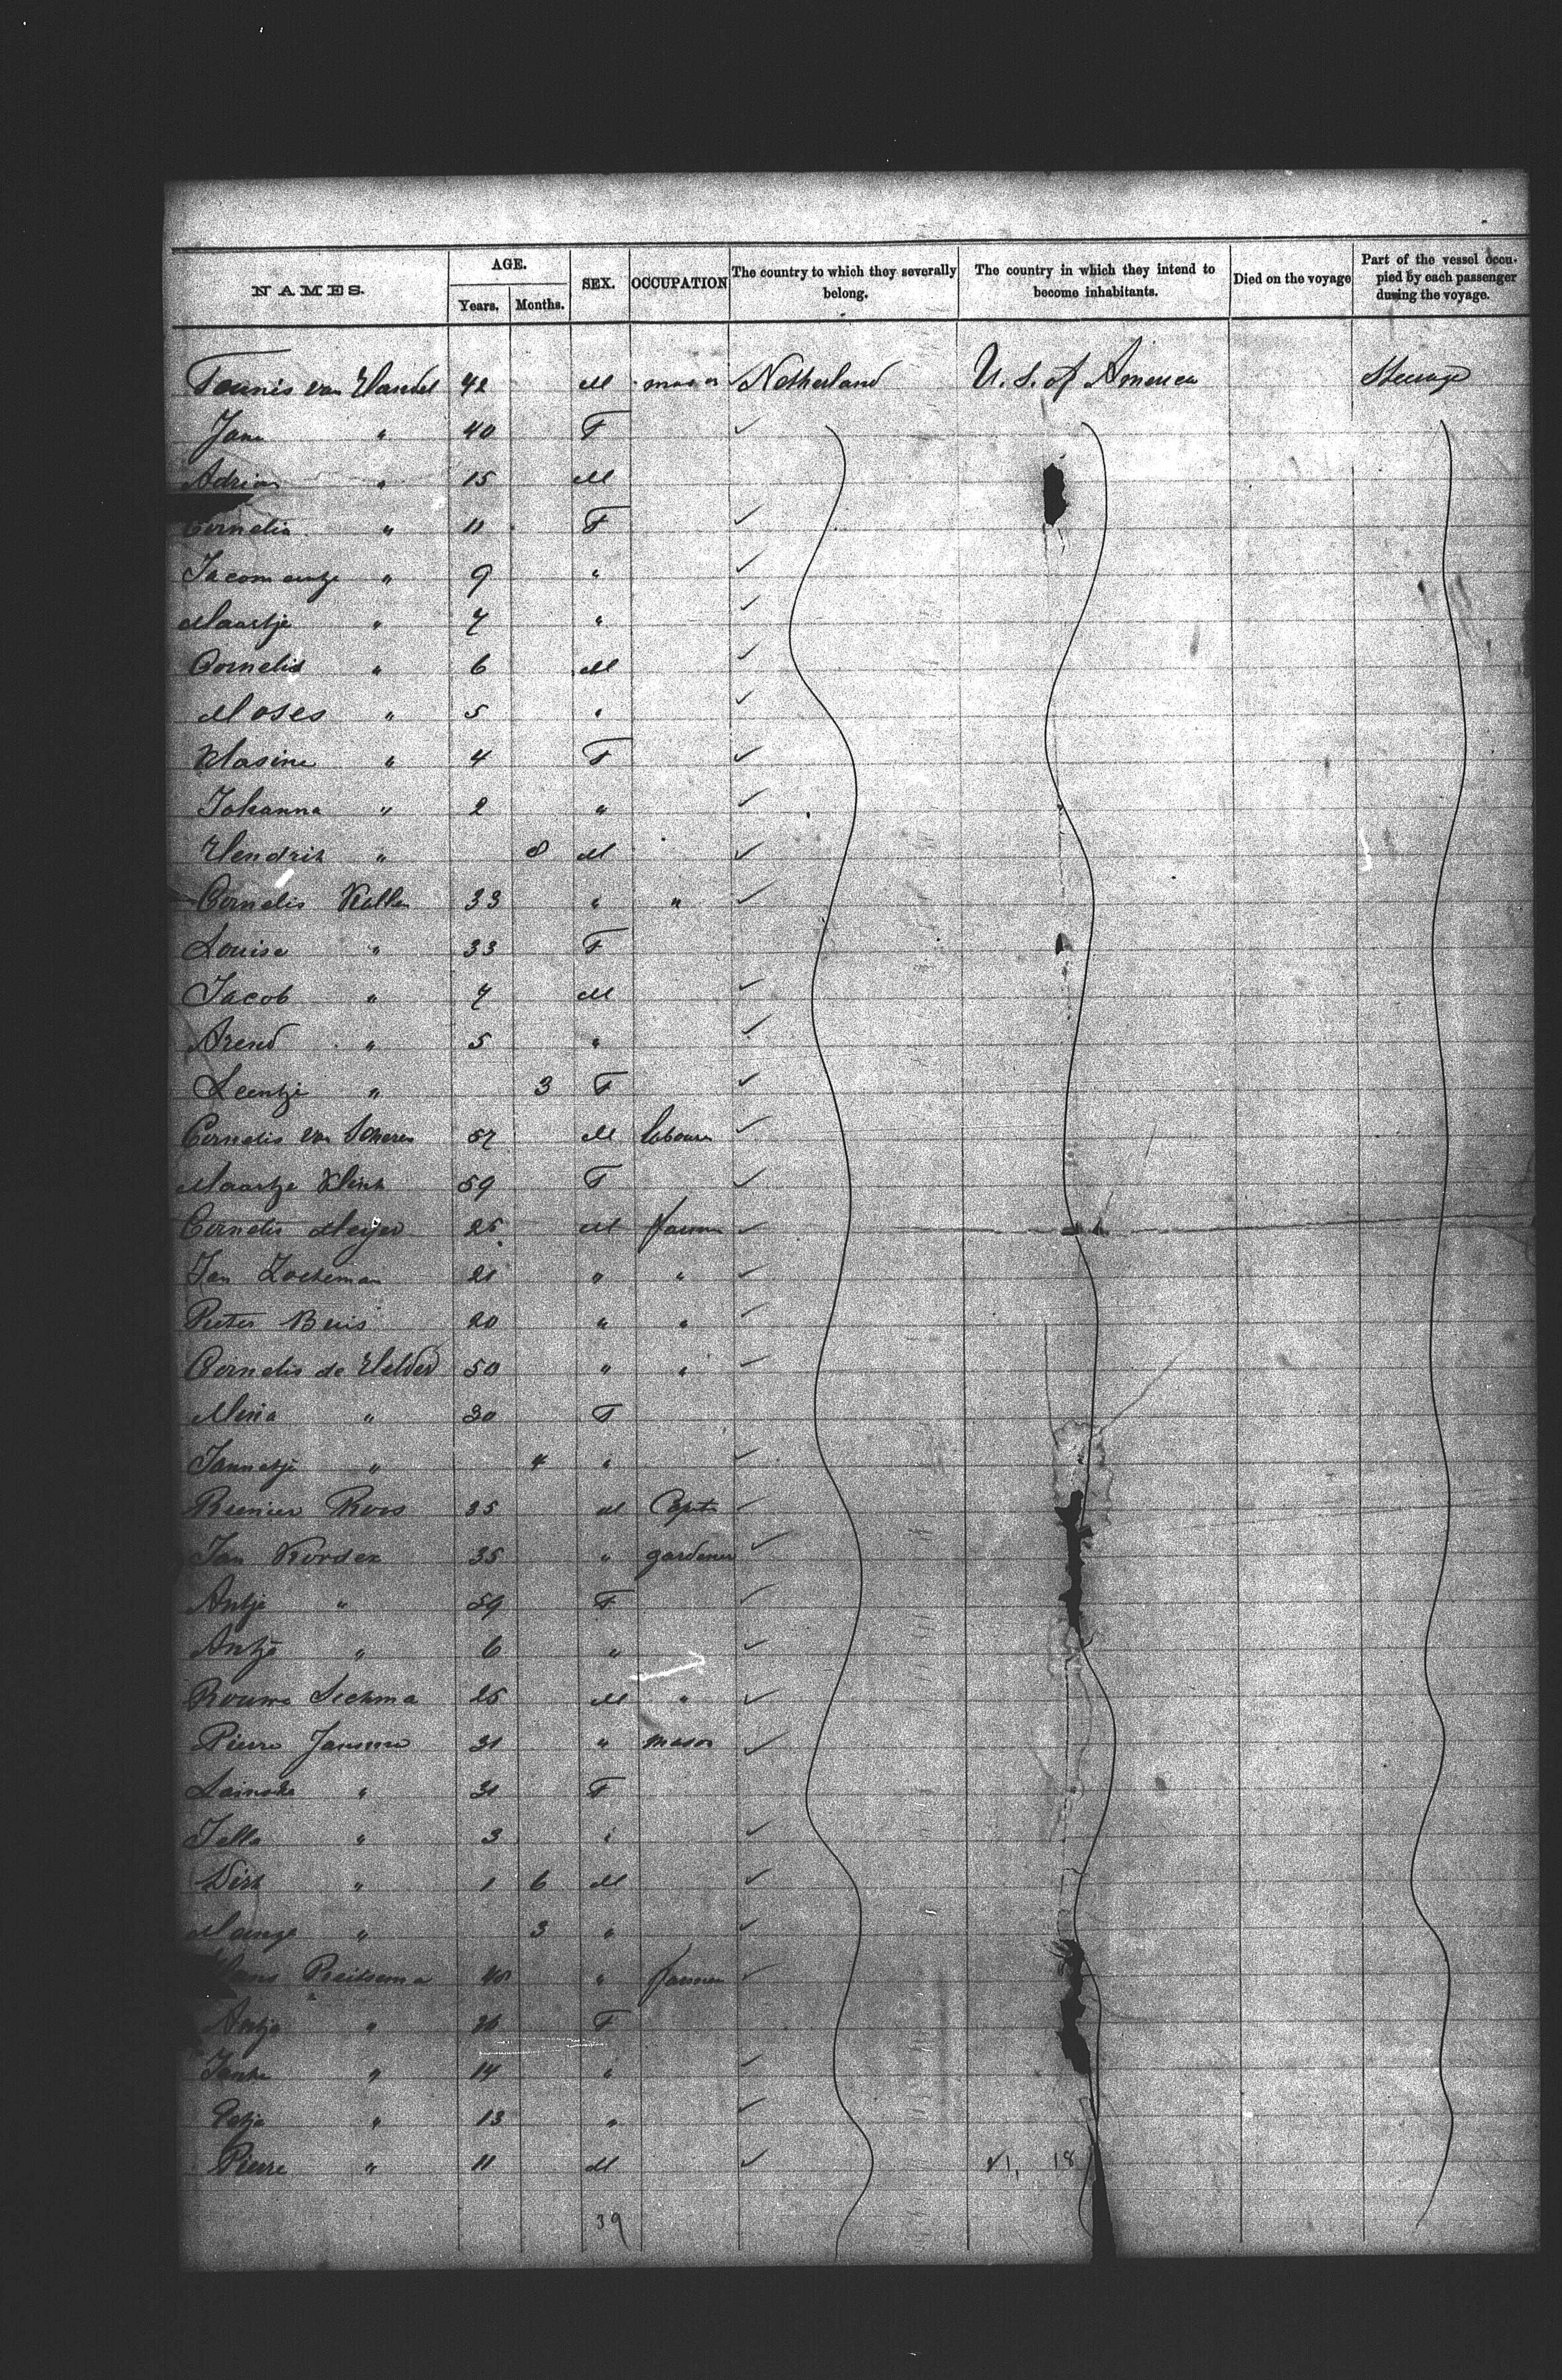 NAMES. AGE. Years. Months. SEX. OCCUPATION The country to which they severally belong. The country in which they intend to become inhabitants. Died on the voyage Part of the vessel occupied by each passenger during the voyage.
Teunis van Handel 42 M mason Netherland U. S. of America Steerage
Jane " 40 F
Adrian " 15 M
Cornelia " 11 F
Jacomantje " 9 "
Maartje " 7 "
Cornelis " 6 M
Moses " 5 "
Klasine " 4 F
Johanna " 2 "
Hendrik " 8 M
Cornelis 33 " "
Louise " 33 F
Jacob " 7 M
Arend " 5 "
Leentje " 3 F
Cornelis van 57 M labourer
Maartje 59 F
Cornelis Meyer 25 M farmer
Jan Zoeteman 21 " "
Pieter Buis 20 " "
Cornelis de Helder 50 " "
Maria " 30 F
Jannetje " 4 "
Reinier Roos 35 M
Jan Korder 35 " gardener
Antje " 59 F
Antje " 6 "
Rouwe 25 M "
Pierre Janssen 31 " mason
" 31 F
Jella " 3 "
Dirk " 1 6 M
" 3 "
Reitsema " farmer
Antje " F
" 14 "
" 13 "
Pierre " 11 M 18
39